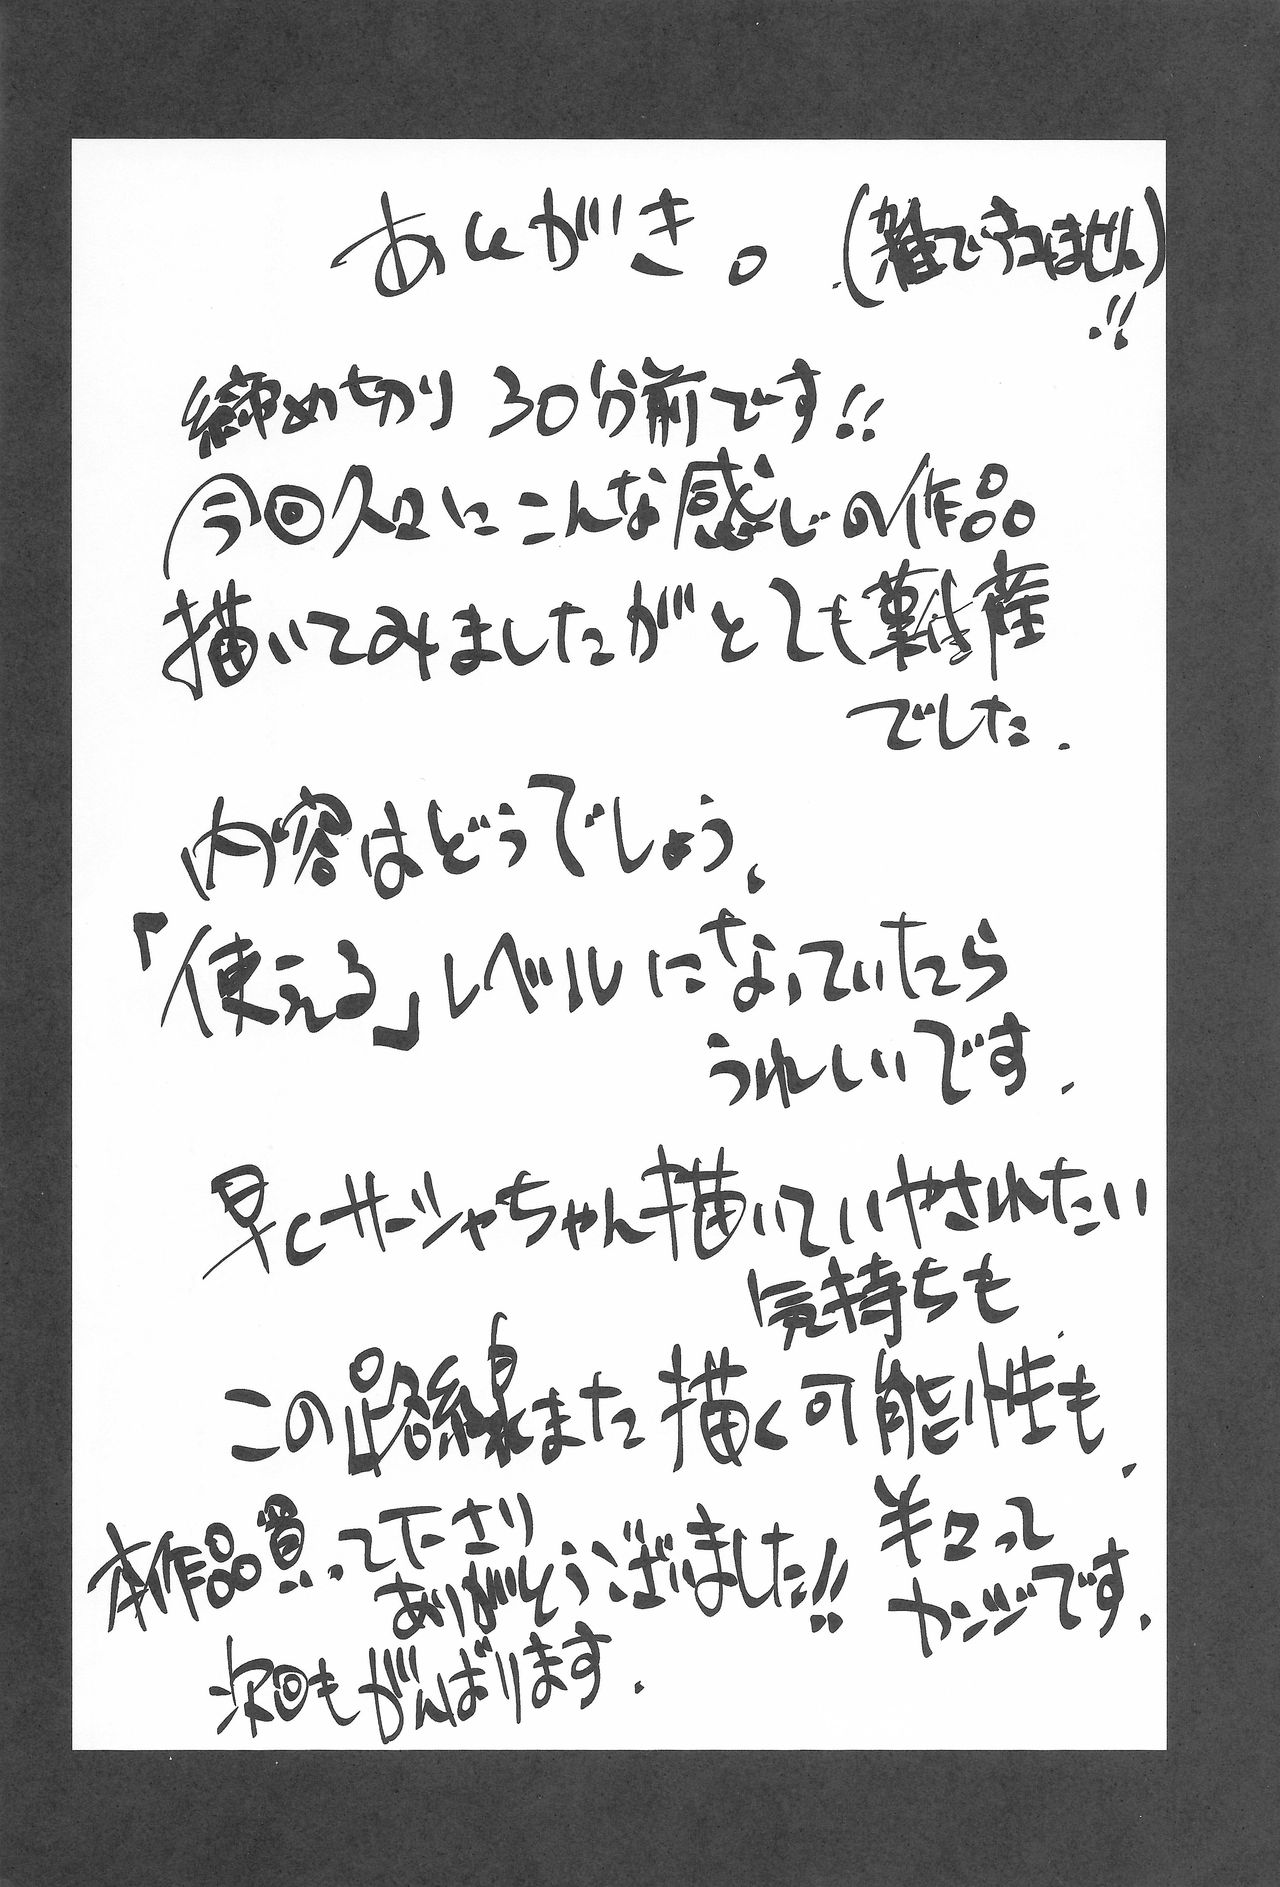 あとがき。
(雑ですみません)
!!
締め切り30分前です!!
今回久々にこんな感じの作品
描いてみましたがとても難産
でした.
内容はどうでしょう、
「使える」レベルになっていたら
うれしいです.
早くサーシャちゃん描いていやされたい
気持ちも
この路線また描く可能性も、
半々って
カンジです、
本作品買って下さり
ありがとうございました!!
次回もがんばります.